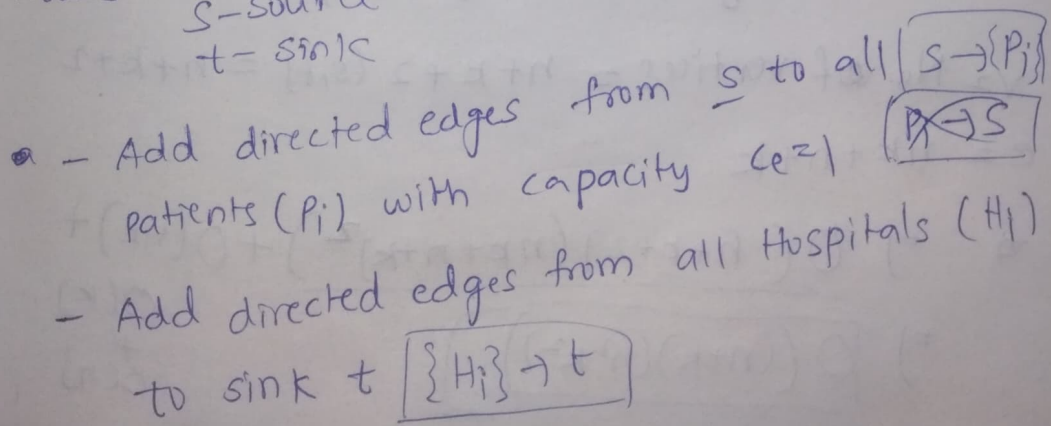 S-source
t- sink
- Add directed edges from s to all S→{Pi}
patients (Pi) with capacity Ce=1
- Add directed edges from all Hospitals (Hi)
to sink t {Hi}→t